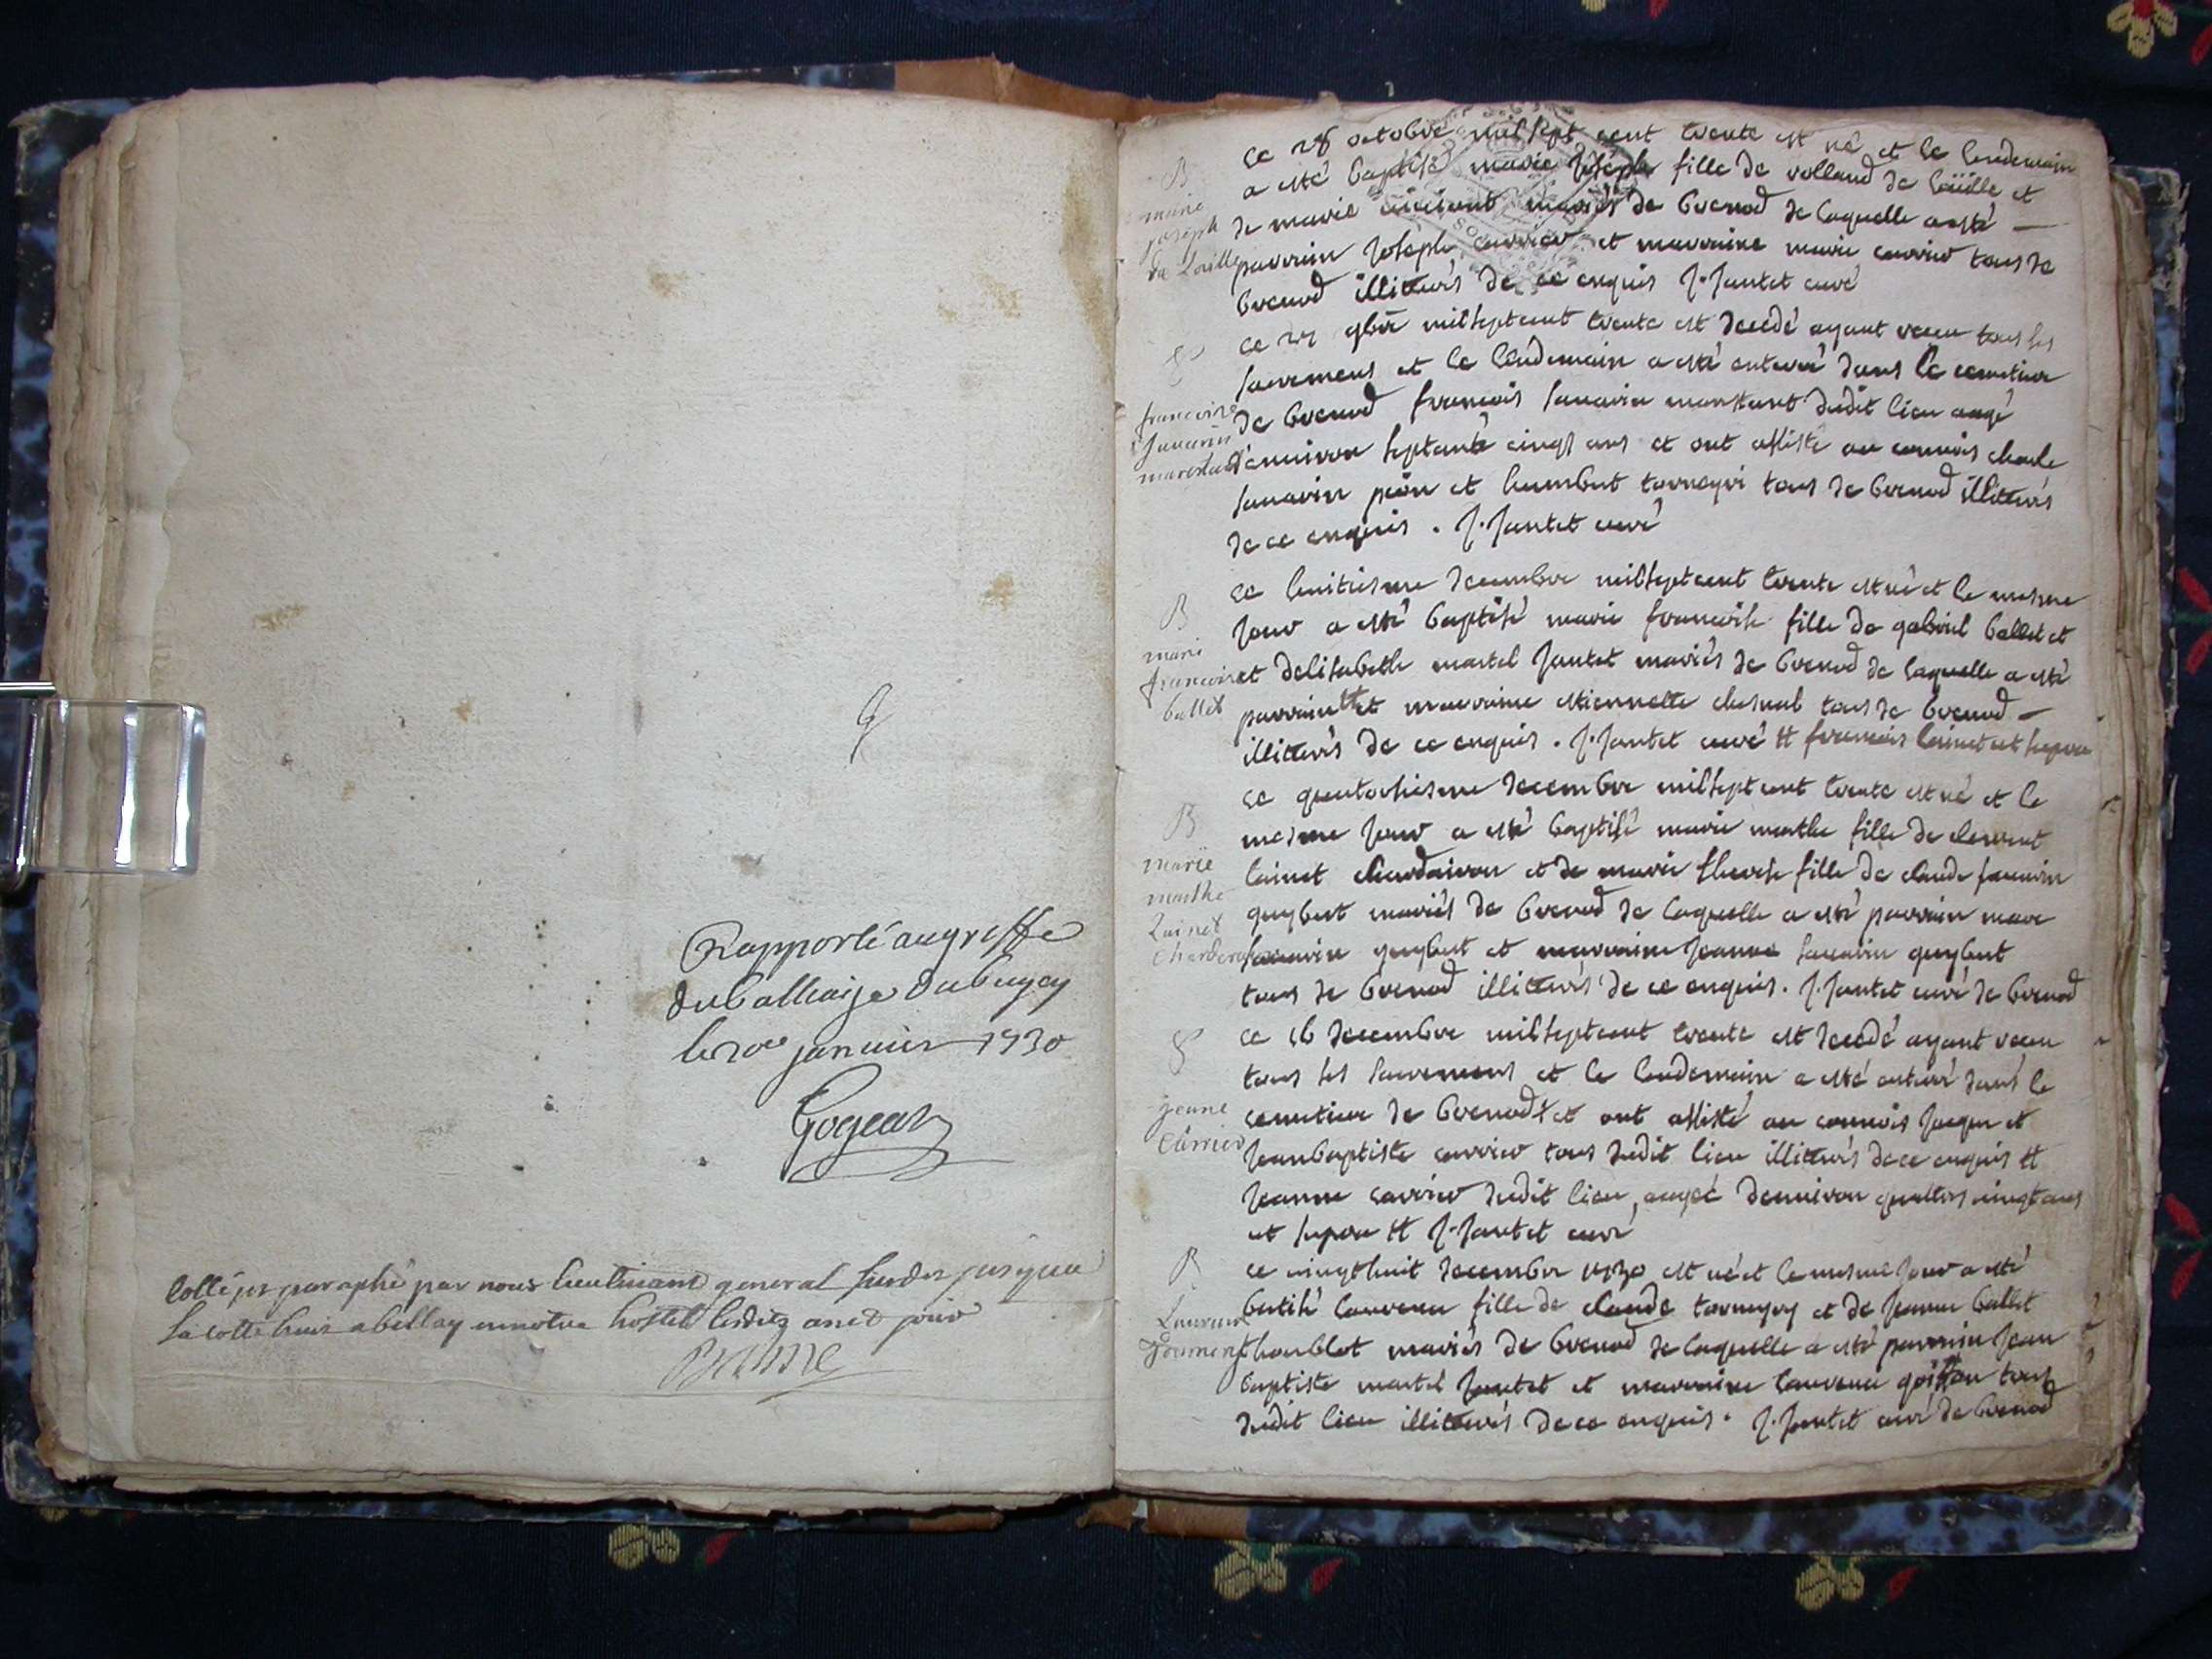 G
Rapporté au greffe
du Balliaige du Bugey
le 20e janvier 1730
Gogeat
Cotté et paraphé par nous lieutenant general jusques
la cotte huis a bellay en notre hostel lesdits an et jour
B
marie
joseph
de Loüille
ce 28 octobre mil sept cent trente est né et le lendemain
a esté baptisé marie joseph fille de rolland de loüille et
de marie mariés de brenod de laquelle a esté —
parrain joseph carrier et marraine marie carrier tous de
brenod illitterés de ce enquis J. Jantet curé
S
francoise
Savarin
ce 9bre mil sept cent trente est decedé ayant receu tous les
sacremens et le lendemain a esté enterré dans le cemetiere
de brenod francois savarin dudit lieu aagé
d'environ septante cinq ans et ont assisté au convois charle
savarin et humbert tournegri tous de brenod illitterés
de ce enquis . J. Jantet curé
B
marie
francoise
ballet
ce huitiesme decembre mil sept cent trente est né et le mesme
jour a esté baptisé marie francoise fille de gabriel ballet et
et delisabeth martel jantet mariés de brenod de laquelle a esté
parrain # et marraine estiennette chesnal tous de brenod —
illitterés de ce enquis . J. Jantet curé # francois lainet
B
marie
marthe
Lainet
ce quatorziesme decembre mil sept cent trente est né et le
mesme jour a esté baptisé marie marthe fille de clement
lainet chardeiron et de marie therese fille de claude savarin
guybert mariés de brenod de laquelle a esté parrain marc
savarin guybert et marraine jeanne savarin guybert
tous de brenod illitterés de ce enquis . J. Jantet curé de brenod
S
jeane
Carrier
ce 16 decembre mil sept cent trente est decedé ayant receu
tous les sacremens et le lendemain a esté enterré dans le
cemetiere de brenod # et ont assisté au convois jacque et
jean baptiste carrier tous dudit lieu illitterés de ce enquis #
jeanne carrier dudit lieu, aagée d'environ quattres vingt ans
J. Jantet curé
B
Laurence
ce vingt huit decembre 1730 est né et le mesme jour a esté
batisé laurence fille de claude tournegry et de jeanne ballet
mariés de brenod de laquelle a esté parrain jean
baptiste martel jantet et marraine laurence goiffon tous
dudit lieu illitterés de ce enquis . J. Jantet curé de brenod